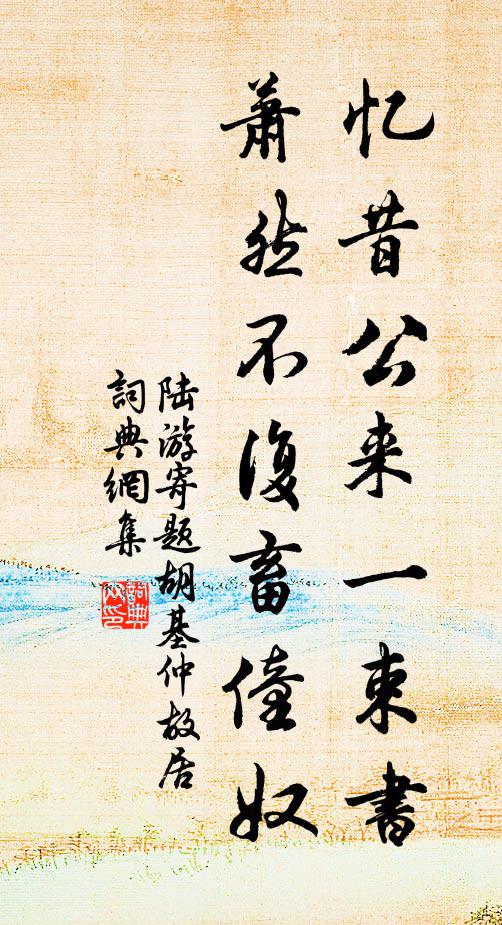 忆昔公来一束書
蕭然不復畜僮奴
陆游寄题胡基仲故居
詞典網集